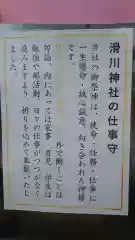 滑川神社の仕事守
当社の御祭神は、使命・任務・仕事に
一生懸命、誠心誠意、向き合われた神様
です。
外で働くことは
勿論、内にあっては家事・育児、学生は
勉強や部活動、日々の仕事がつつがなく
進みますよう、祈りを込めて奉製いたし
ました。